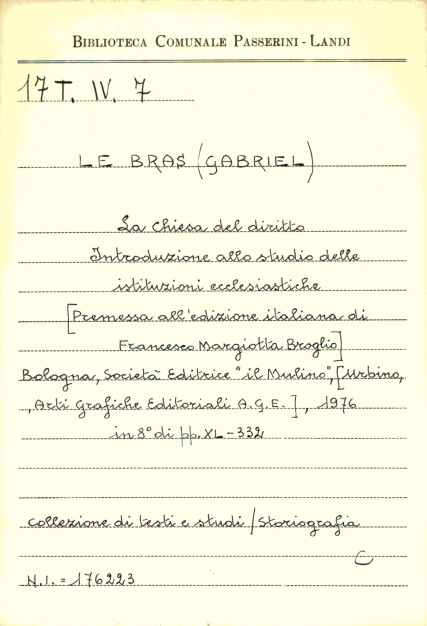 BIBLIOTECA COMUNALE PASSERINI - LANDI
17 T. IV. 7
LE BRAS (GABRIEL)
La Chiesa del diritto
Introduzione allo studio delle
istituzioni ecclesiastiche
[Premessa all'edizione italiana di
Francesco Margiotta Broglio]
Bologna, Società Editrice "il Mulino", [Urbino,
, Arti Grafiche Editoriali A.G.E.], 1976
in 8° di pp. XL-332
Collezione di testi e studi / Storiografia
C
N.I. = 176223